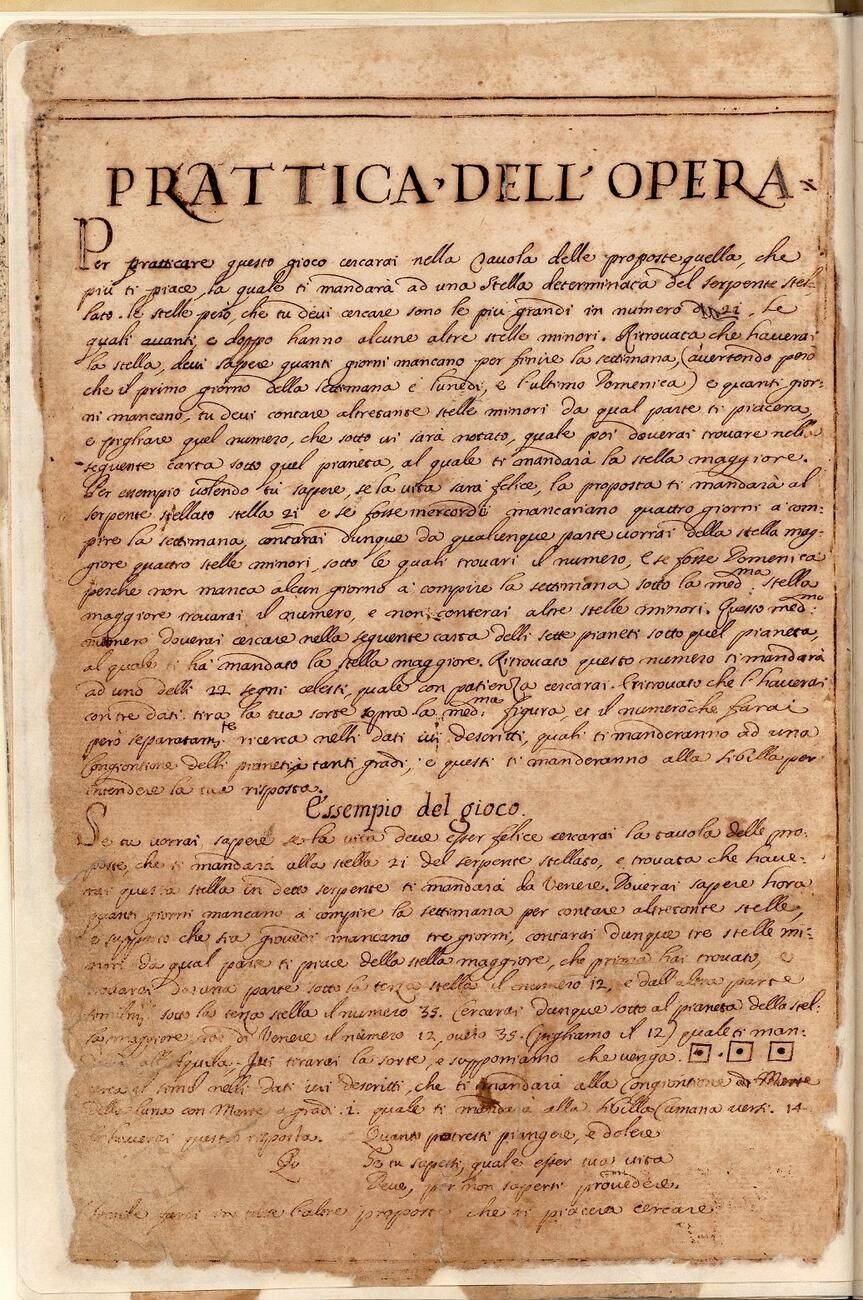 PRATTICA DELL' OPERA
Per pratticare questo gioco cercarai nella Tavola delle proposte quella, che
più ti piace, la quale ti mandarà ad una Stella determinata del serpente stel-
lato. le stelle però, che tu devi cercare sono le più grandi in numero di 21. Le
quali avanti, e doppo hanno alcune altre stelle minori. Ritrovata che haverai
la stella, devi sapere quanti giorni mancano per finire la settimana, (avertendo però
che il primo giorno della settimana è lunedi, e l'ultimo Domenica) e quanti gior-
ni mancano, tu devi contare altretante stelle minori da qual parte ti piacerà,
e pigliare quel numero, che sotto vi sarà notato, quale poi doverai trovare nella
seguente carta sotto quel pianeta, al quale ti mandarà la stella maggiore.
Per essempio volendo tu sapere, se la vita sarà felice, la proposta ti mandarà al
serpente stellato stella 21 e se fosse mercordi mancariano quattro giorni a com-
pire la settimana, contarai dunque da qualunque parte vorrai della stella mag-
giore quattro stelle minori, sotto le quali trovarai il numero, e se fosse Domenica
perche non manca alcun giorno a compire la settimana sotto la med:ma stella
maggiore trovarai il numero, e non conterai altre stelle minori. Questo med:mo
numero doverai cercare nella seguente carta delli sette pianeti sotto quel pianeta,
al quale ti ha mandato la stella maggiore. Ritrovato questo numero ti mandarà
ad uno delli 22 segni celesti, quale con patienza cercarai. E ritrovato che l'haverai
con tre dati tira la tua sorte sopra la med:ma figura, et il numero che farai
però separatam:te ricerca nelli dati ivi descritti, quali ti manderanno ad una
Congiontione delli pianeti a tanti gradi, e questi ti manderanno alla sibilla per
intendere la tua risposta.
Essempio del gioco.
Se tu vorrai sapere se la vita deve esser felice cercarai la tavola delle pro-
poste, che ti mandarà alla stella 21 del serpente stellato, e trovata che have-
rai questa stella in detto serpente ti mandarà da Venere. Doverai sapere hora
quanti giorni mancano a compire la settimana per contare altretante stelle,
e supposto che sia giovedi mancano tre giorni, contarai dunque tre stelle mi-
nori da qual parte ti piace della stella maggiore, che prima hai trovato, e
trovarai da una parte sotto la terza stella il numero 12, e dall'altra parte
similm: sotto la terza stella il numero 35. Cercarai dunque sotto al pianeta della stel-
la maggiore cioè di Venere il numero 12, overo 35. (pigliamo il 12) quale ti man-
darà all'Aquila. Ivi tirarai la sorte, e supponiamo che venga.
cerca il simil nelli Dati ivi descritti, che ti mandarà alla Congiontione
della luna con Marte a gradi 1. quale ti mandarà alla Sibilla Cumana versi. 14
e haverai questa risposta. Quanto potresti piangere, e dolere
Se tu sapesti, quale esser tua vita
Deve, per non saperti provedere.
Simile farai in tutte l'altre proposte che ti piacerà cercare